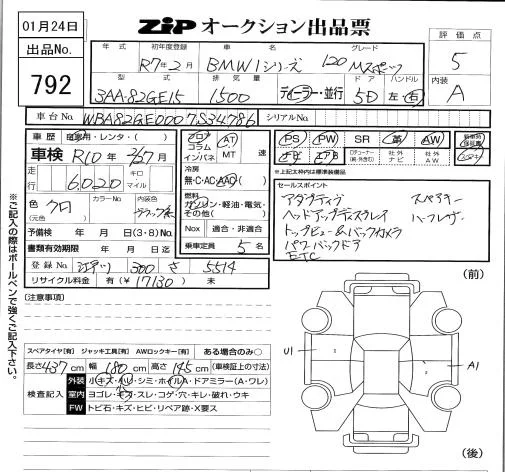 01月24日
ZiP オークション出品票
出品No.
792
年式
初年度登録
車名
グレード
R7年2月
BMW 1シリーズ
120 Mスポーツ
評価点
5
型式
排気量
ドア
ハンドル
3AA-82GE15
1500
ディーラー・並行
5D
左・右
内装
A
車台No.
WBA82GE0007S34786
シリアルNo.
車歴
自家用・レンタ・( )
車検 R10年 2月 7日
走行
6,020
キロ
マイル
色
クロ
(元色)
カラーNo.
内装色
予備検 年 月 日(3・8)No.
書類有効期限 年 月 日迄
登録No.
300 さ 5514
リサイクル料金 有(¥17130) 未
フロア
コラム
インパネ
AT
MT
速
冷房
無・C・AC・AAC
燃料
ガソリン・軽油・電気・
その他( )
Nox 適合・非適合
乗車定員 5 名
PS
PW
SR
革
AW
TVチューナー
(純・外含む)
社外
ナビ
社外
AW
※上記太枠内は標準装備品
セールスポイント
アダプティブ
スペアキー
ヘッドアップディスプレイ
ハーフレザー
トップビュー&バックカメラ
パワーバックドア
ETC
※ご記入の際はボールペンで強くご記入下さい。
[注意事項]
スペアタイヤ[有] ジャッキ工具[有] AWロックキー[有] ある場合のみ○
長さ 437 cm 幅 180 cm 高さ 145 cm (車検証上の寸法)
検査記入
外装
小キズ・ハリ・シミ・ホイルA・ドアミラー(A・ワレ)
室内
ヨゴレ・キズ・スレ・コゲ・穴・キレ・破れ・ウキ
FW
トビ石・キズ・ヒビ・リペア跡・X要ス
(前)
U1
A1
(後)